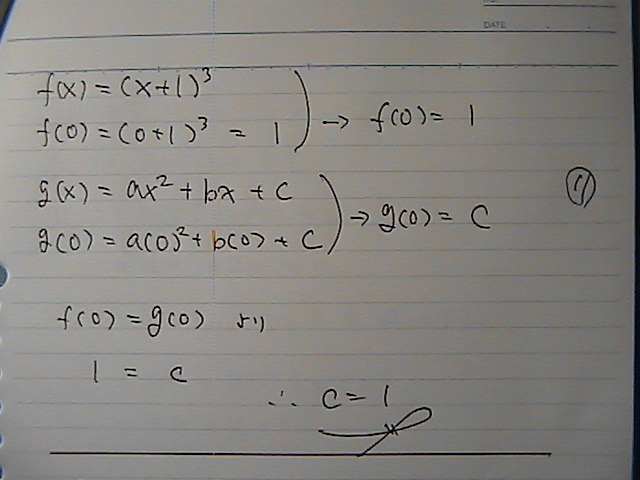 DATE
f(x) = (x+1)³
f(0) = (0+1)³ = 1 → f(0) = 1
g(x) = ax² + bx + c
①
g(0) = a(0)² + b(0) + c → g(0) = c
f(0) = g(0) より
1 = c
∴ c = 1